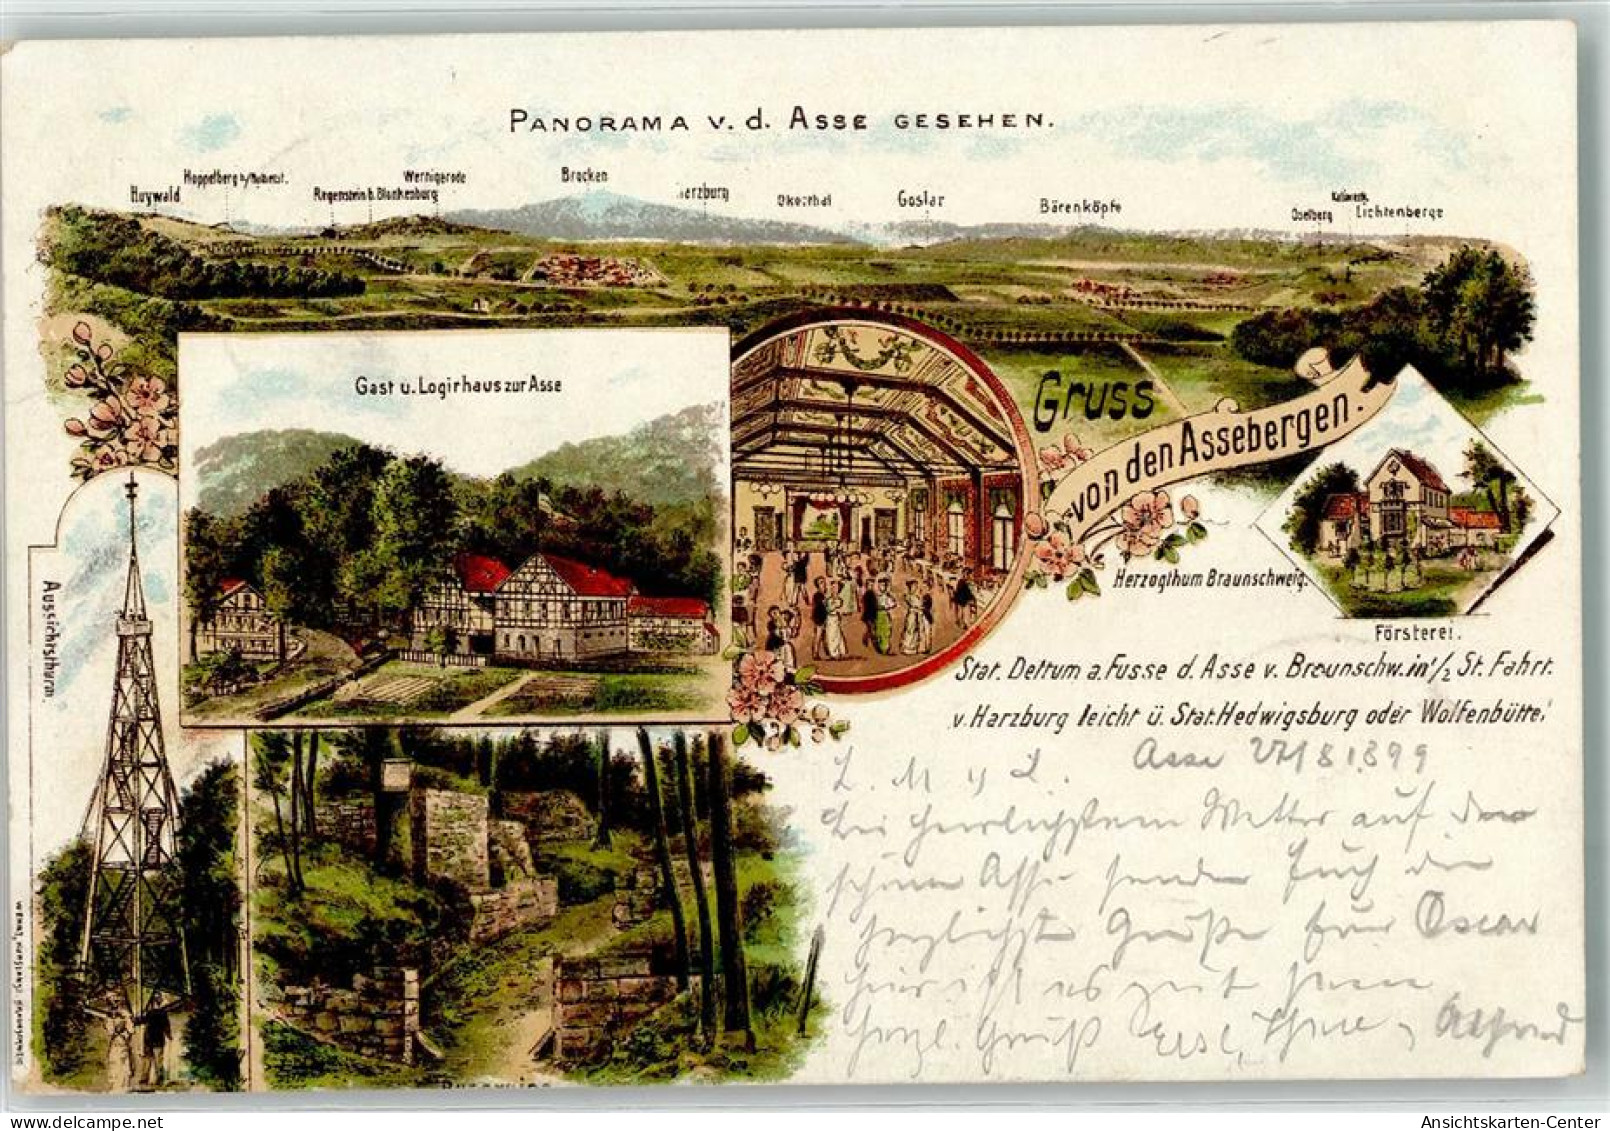 PANORAMA v. d. ASSE GESEHEN.
Huywald
Hoppelberg b/Halberst.
Regenstein b. Blankenburg
Wernigerode
Brocken
Harzburg
Okerthal
Goslar
Bärenköpfe
Oselberg
Lichtenberge
Gast u. Logirhaus zur Asse
Gruss
von den Assebergen.
Herzogthum Braunschweig.
Försterei.
Aussichtsthurm.
Stat. Dettum a. Fusse d. Asse v. Braunschw. in 1/2 St. Fahrt.
v. Harzburg leicht ü. Stat. Hedwigsburg oder Wolfenbüttel
Asse 27/8 1899
L. M u L.
Bei herrlichstem Wetter auf der
schönen Asse senden Euch die
herzlichste Grüße für Oscar
hier ist es
herzl. Gruß Alfred
Burgruine
Ansichtskarten-Center